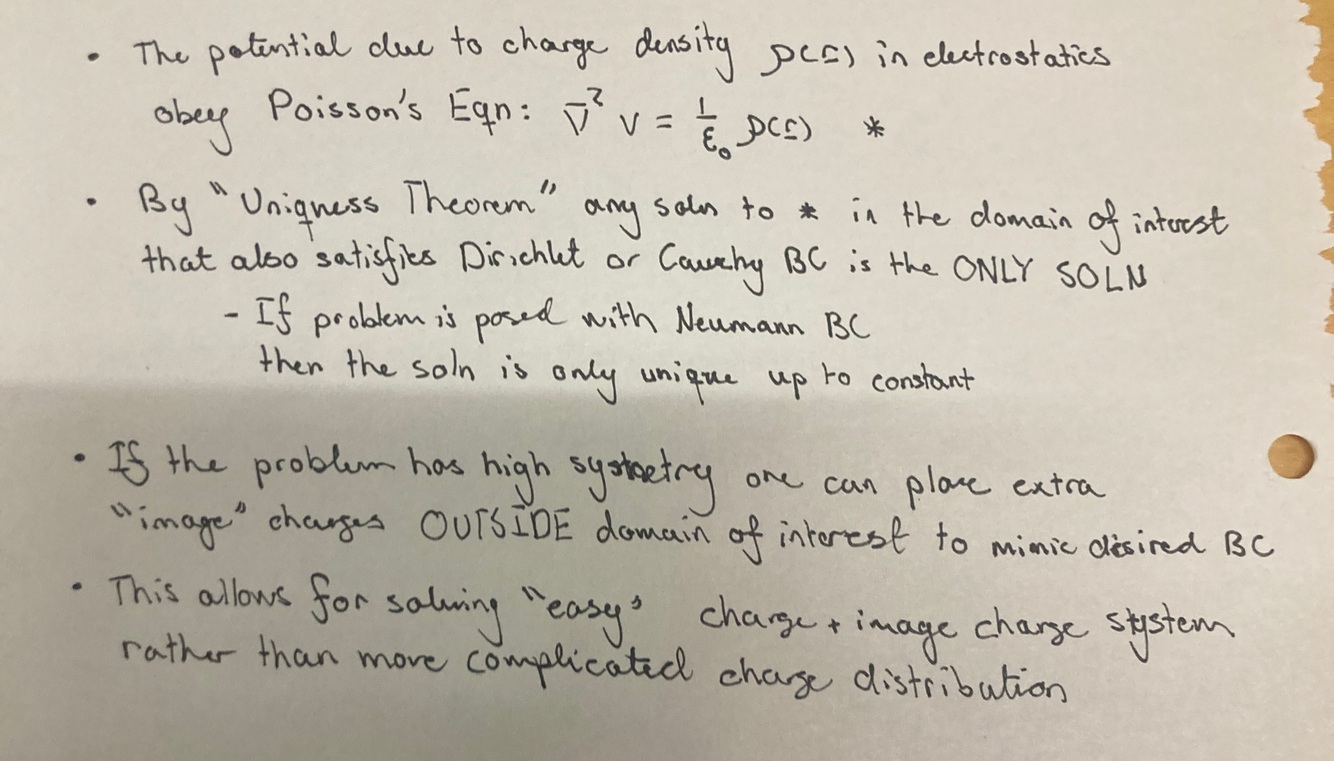 • The potential due to charge density ρ(r) in electrostatics
obey Poisson's Eqn: ∇² V = 1/ε₀ ρ(r) *
• By "Uniqness Theorem" any soln to * in the domain of interest
that also satisfies Dirichlet or Cauchy BC is the ONLY SOLN
- If problem is posed with Neumann BC
then the soln is only unique up to constant
• If the problem has high symmetry one can place extra
"image" charges OUTSIDE domain of interest to mimic desired BC
• This allows for solving "easy" charge + image charge system
rather than more complicated charge distribution